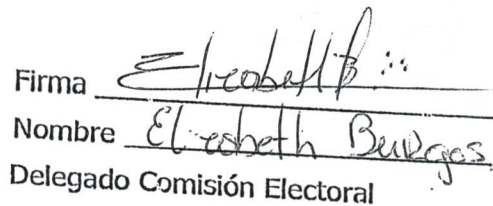 Firma Elizabeth B
Nombre Elizabeth Burgos
Delegado Comisión Electoral